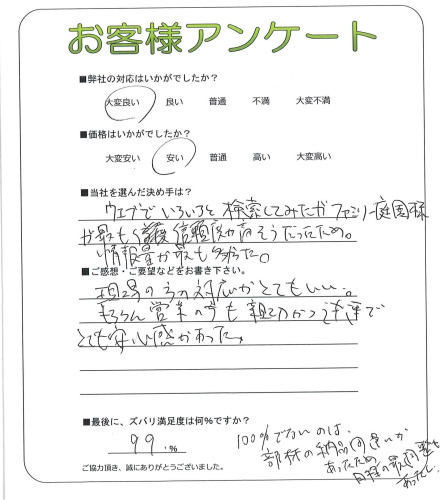 お客様アンケート
■弊社の対応はいかがでしたか？
大変良い 良い 普通 不満 大変不満
■価格はいかがでしたか？
大変安い 安い 普通 高い 大変高い
■当社を選んだ決め手は？
ウェブでいろいろと検索してみたがファミリー庭園様
が最も信頼度が高そうだったため。
情報量が最も多かった。
■ご感想・ご要望などをお書き下さい。
現場の方の対応がとてもいい。
もちろん営業の方も親切かつ迅速で
とても安心感があった。
■最後に、ズバリ満足度は何%ですか？
99.%
ご協力頂き、誠にありがとうございました。
100%でないのは、
部材の納品間違いが
あったため
日程の